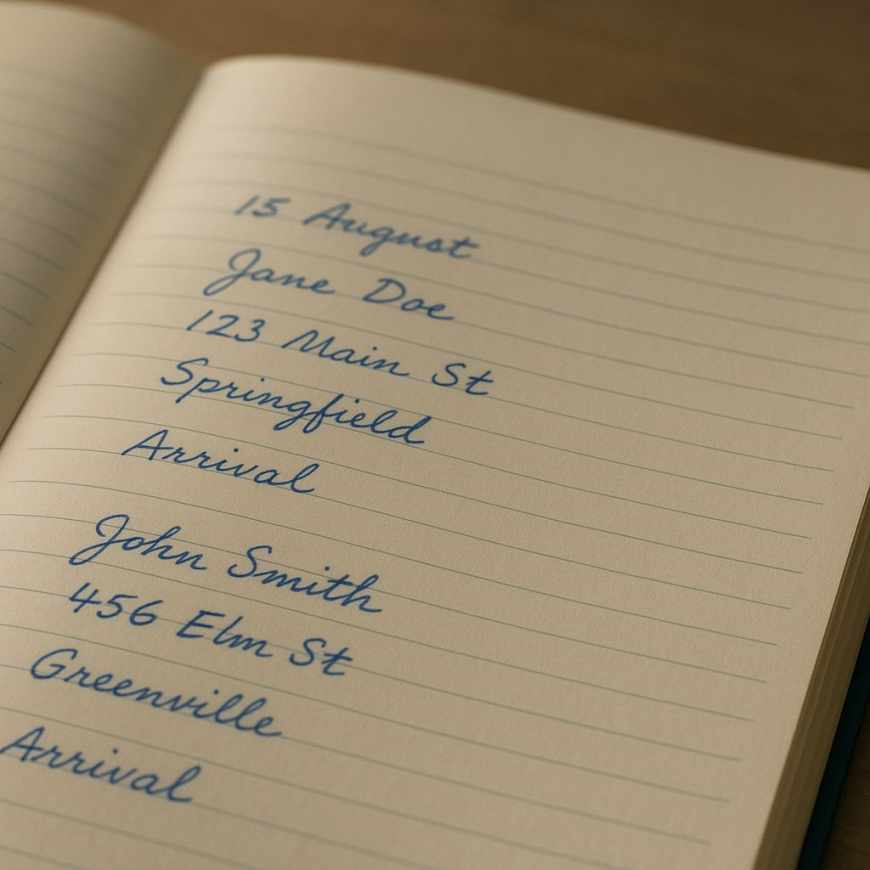 15 August
Jane Doe
123 Main St
Springfield
Arrival
John Smith
456 Elm St
Greenville
Arrival